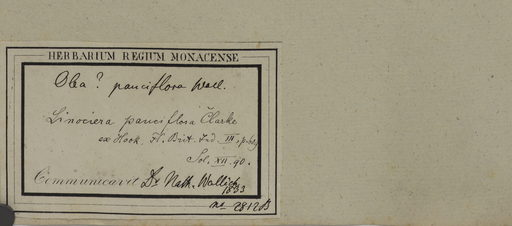 HERBARIUM REGIUM MONACENSE
Olea? pauciflora Wall.
Linociera pauciflora Clarke
ex Hook. Fl. Brit. Ind. III, p. 609
Sol. XII. 90.
Communicavit Dr Nath. Wallich
1833
no 2812B